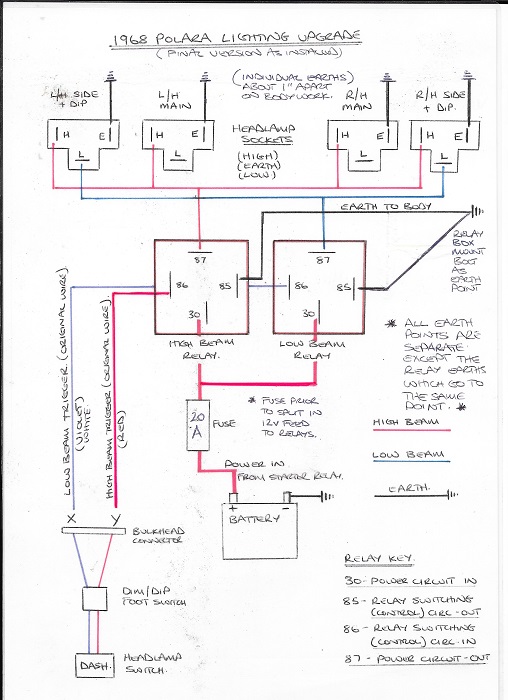 1968 POLARA LIGHTING UPGRADE
(FINAL VERSION AS INSTALLED)
L/H SIDE
+ DIP
L/H
MAIN
(INDIVIDUAL EARTHS)
ABOUT 1" APART
ON BODYWORK.
R/H
MAIN
R/H SIDE
+ DIP.
H E
L
H E
L
HEADLAMP
SOCKETS
(HIGH)
(EARTH)
(LOW)
H E
L
H E
L
EARTH TO BODY
RELAY
BOX
MOUNT
BOLT
AS
EARTH
POINT
87
86 85
30
HIGH BEAM
RELAY.
87
86 85
30
LOW BEAM
RELAY
LOW BEAM TRIGGER (ORIGINAL WIRE)
(VIOLET)
WHITE.
HIGH BEAM TRIGGER (ORIGINAL WIRE).
(RED)
* ALL EARTH
POINTS ARE
SEPARATE
EXCEPT THE
RELAY EARTHS
WHICH GO TO
THE SAME
POINT. *
20
A
FUSE
* FUSE PRIOR
TO SPLIT IN
12V FEED
TO RELAYS.
HIGH BEAM
LOW BEAM
EARTH.
POWER IN
FROM STARTER RELAY.
+ -
BATTERY
X Y
BULKHEAD
CONNECTOR
DIM/DIP
FOOT SWITCH
DASH.
HEADLAMP
SWITCH
RELAY KEY.
30 - POWER CIRCUIT IN
85 - RELAY SWITCHING
(CONTROL) CIRC - OUT
86 - RELAY SWITCHING
(CONTROL) CIRC. IN
87 - POWER CIRCUIT - OUT